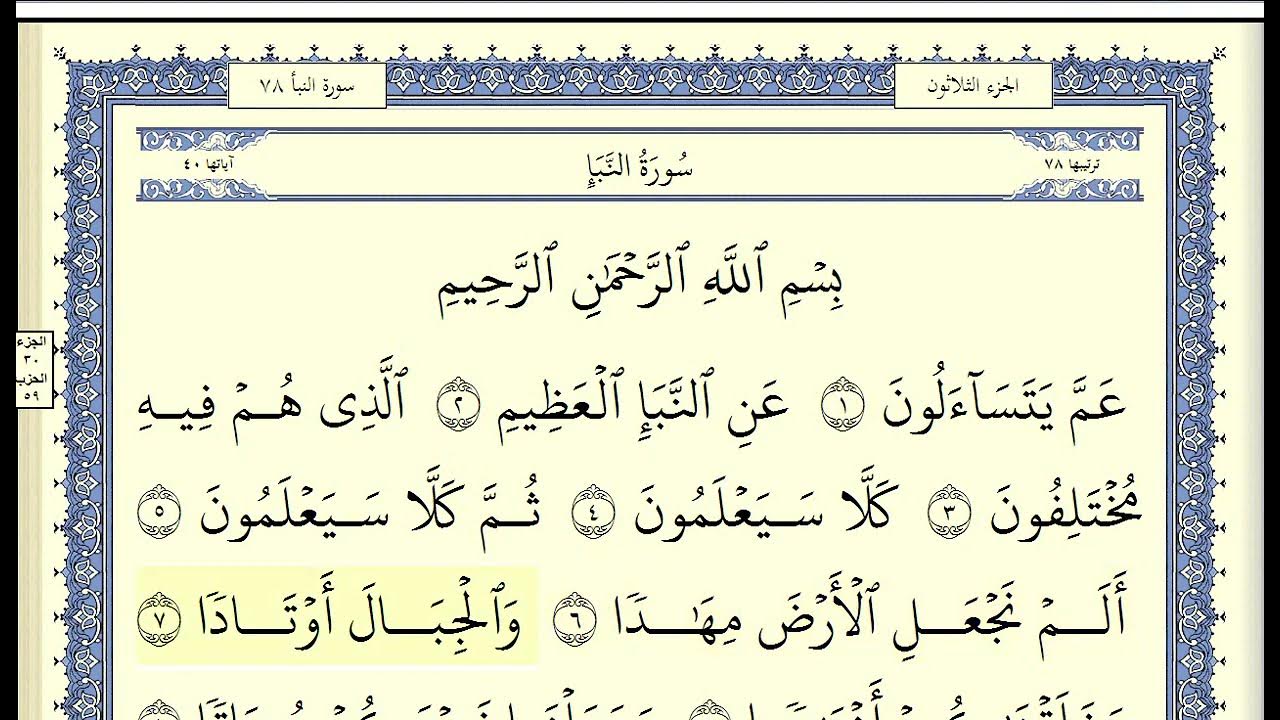 الجزء الثلاثون
سورة النبأ ٧٨
ترتيبها ٧٨
سُورَةُ النَّبَإِ
آياتها ٤٠
بِسۡمِ ٱللَّهِ ٱلرَّحۡمَٰنِ ٱلرَّحِيمِ
عَمَّ يَتَسَآءَلُونَ ١ عَنِ ٱلنَّبَإِ ٱلۡعَظِيمِ ٢ ٱلَّذِى هُمۡ فِيهِ
مُخۡتَلِفُونَ ٣ كَلَّا سَيَعۡلَمُونَ ٤ ثُمَّ كَلَّا سَيَعۡلَمُونَ ٥
أَلَمۡ نَجۡعَلِ ٱلۡأَرۡضَ مِهَٰدٗا ٦ وَٱلۡجِبَالَ أَوۡتَادٗا ٧
الجزء
٣٠
الحزب
٥٩